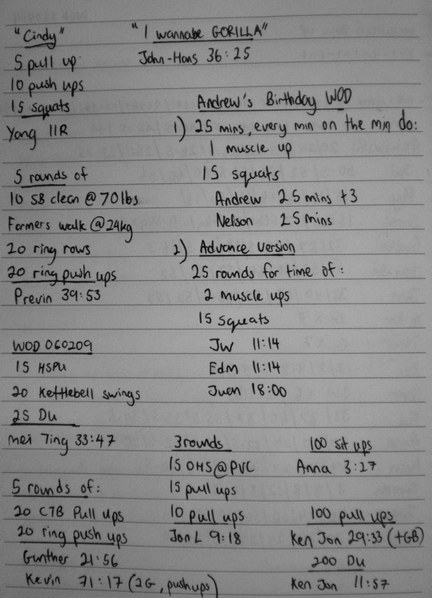 "Cindy"
5 pull up
10 push ups
15 squats
Yong 11R
5 rounds of
10 SB clean @ 70lbs
Farmers walk @ 24kg
20 ring rows
20 ring push ups
Previn 39:53
WOD 060209
15 HSPU
20 Kettlebell swings
25 DU
Mei Ting 33:47
5 rounds of:
20 CTB Pull ups
20 ring push ups
Gunther 21:56
Kevin 71:17 (2G, pushups)
"I wannabe GORILLA"
John-Hans 36:25
Andrew's Birthday WOD
1) 25 mins, every min on the min do:
1 muscle up
15 squats
Andrew 25 mins +3
Nelson 25 mins
2) Advance version
25 rounds for time of:
2 muscle ups
15 squats
JW 11:14
Edm 11:14
Juan 18:00
3 rounds
15 OHS @ PVC
15 pull ups
10 pull ups
Jon L 9:18
100 sit ups
Anna 3:27
100 pull ups
Ken Jon 29:33 (+GB)
200 DU
Ken Jon 11:57